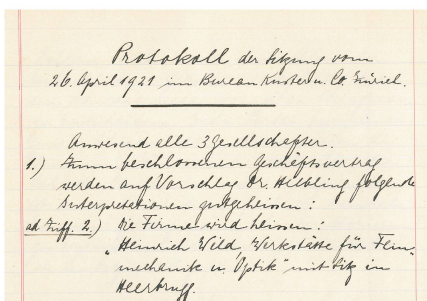 Protokoll der Sitzung vom
26. April 1921 im Bureau Kuster u. Co. Zürich.
Anwesend alle 3 Gesellschafter.
1.) Zum beschlossenen Geschäftsvertrag
werden auf Vorschlag Dr. Helbling folgende
Interpretationen gutgeheissen:
ad Ziff. 2.) Die Firma wird heissen:
„Heinrich Wild, Werkstätte für Fein-
mechanik u. Optik" mit Sitz in
Heerbrugg.